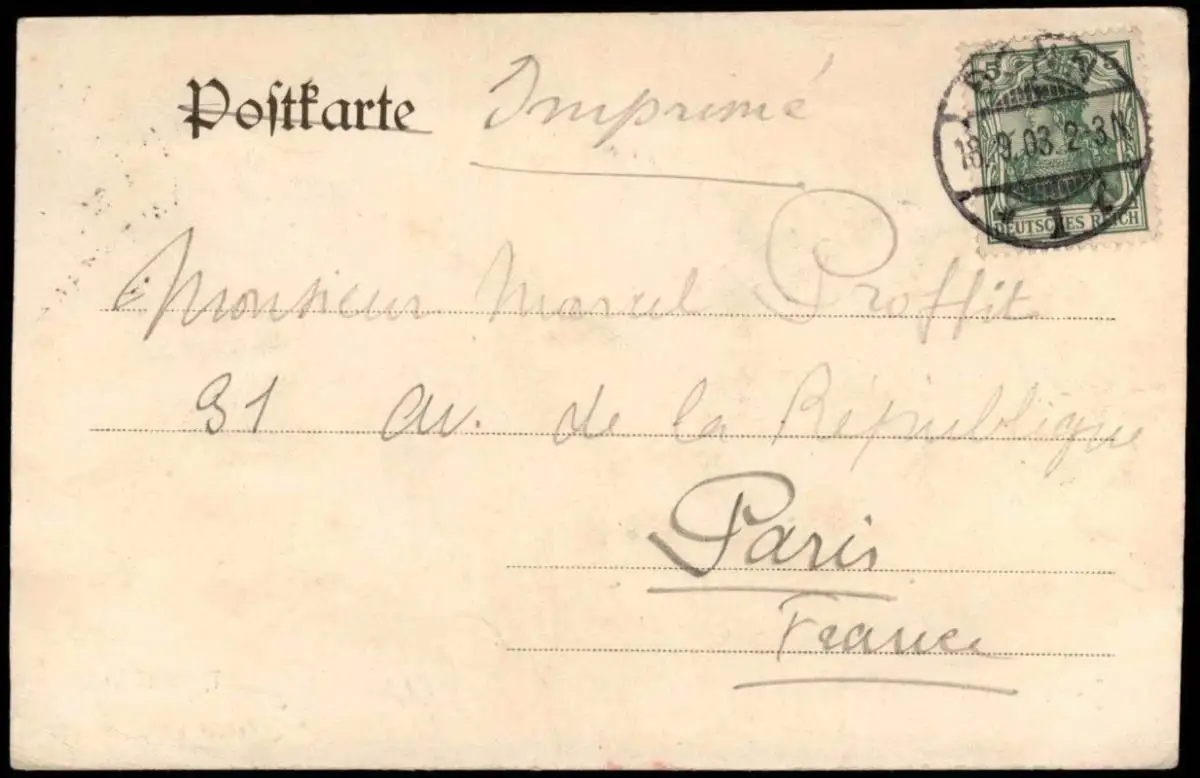 Postkarte Imprimé
5 5
18.9.03. 2-3N.
* 1 i
DEUTSCHES REICH
Monsieur Marcel Proffit
91 av. de la République
Paris
France